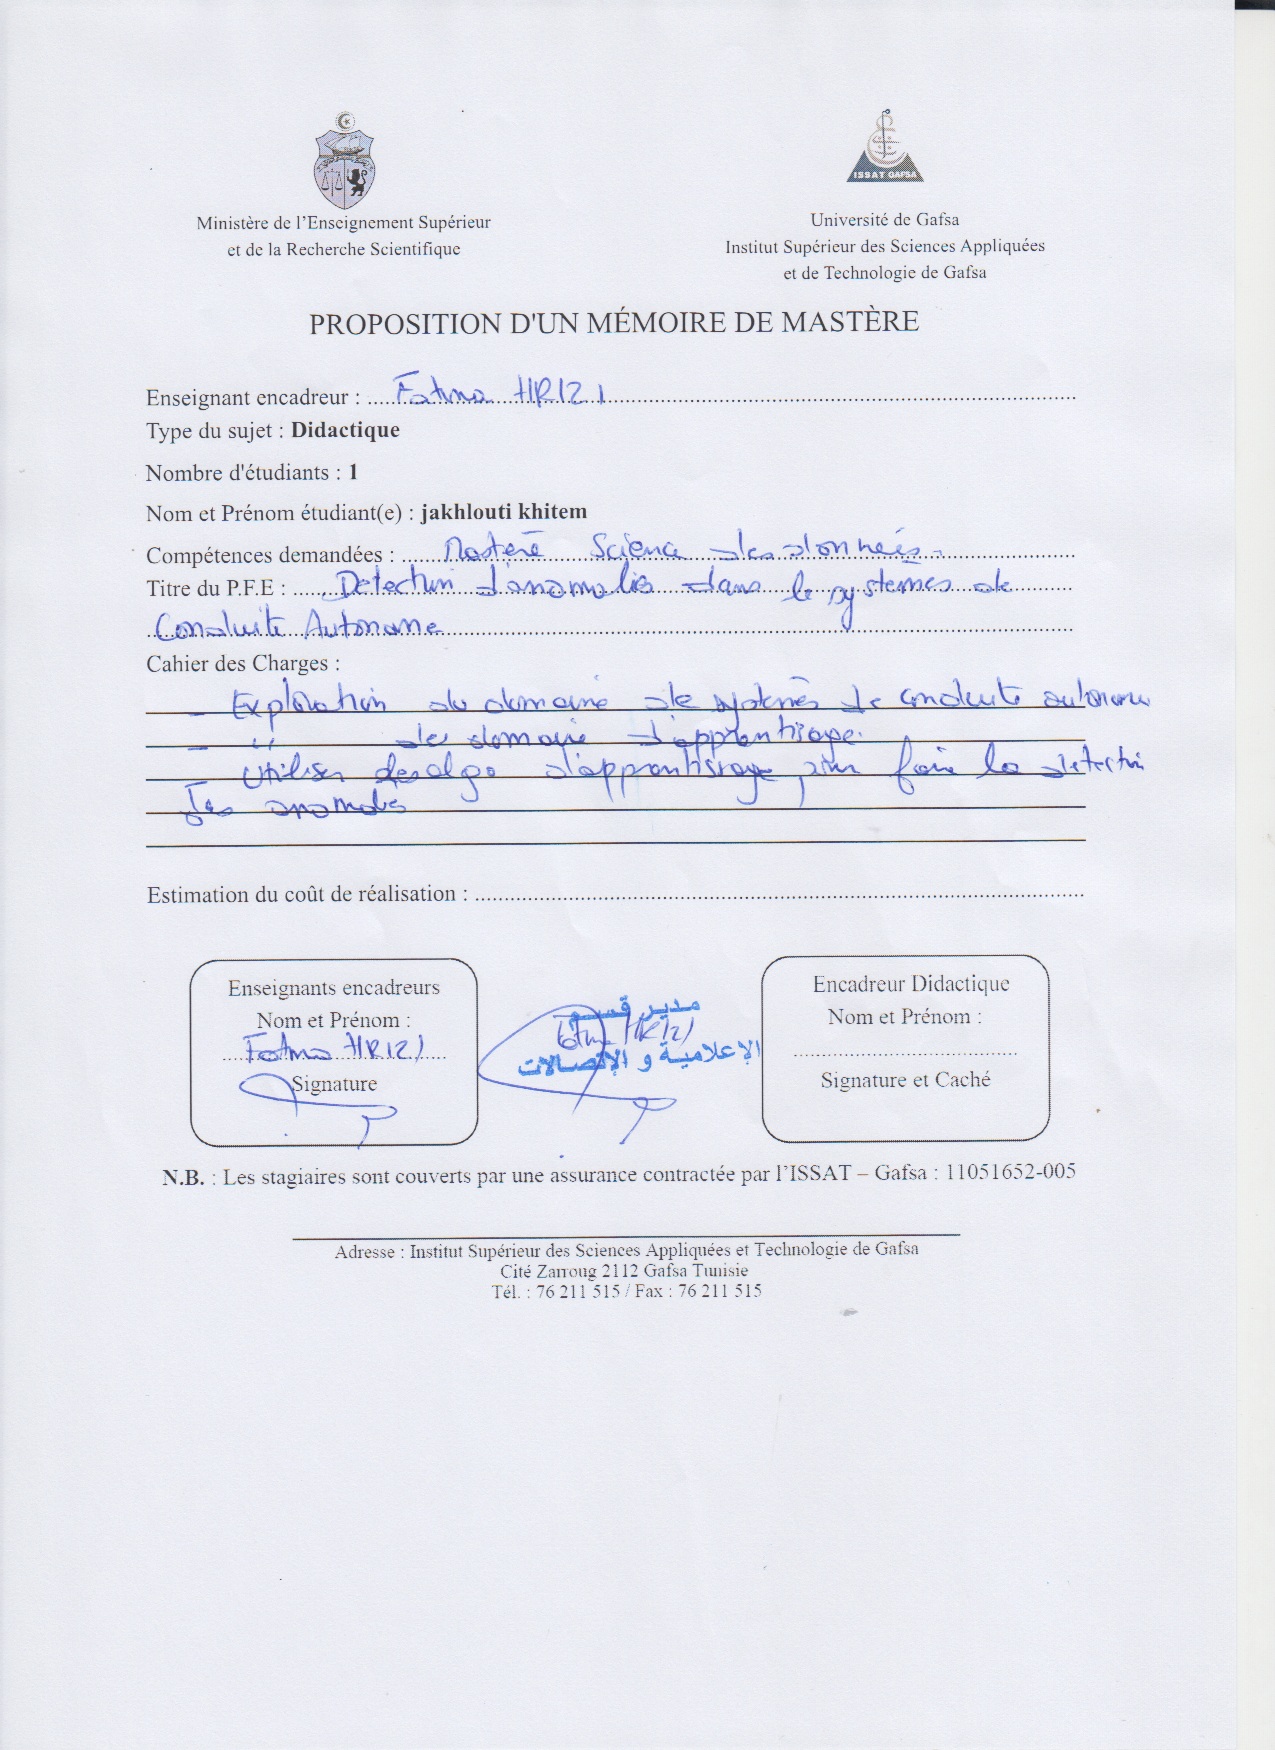 ISSAT GAFSA
Ministère de l'Enseignement Supérieur
et de la Recherche Scientifique
Université de Gafsa
Institut Supérieur des Sciences Appliquées
et de Technologie de Gafsa
PROPOSITION D'UN MÉMOIRE DE MASTÈRE
Enseignant encadreur : Fatma HRIZI
Type du sujet : Didactique
Nombre d'étudiants : 1
Nom et Prénom étudiant(e) : jakhlouti khitem
Compétences demandées : Mastère Science des données
Titre du P.F.E : Détection d'anomalies dans le systèmes de
Conduite Autonome
Cahier des Charges :
- Exploration du domaine de systèmes de conduite autonome
- " de domaine d'apprentissage.
- Utiliser des algo d'apprentissage pour faire la détection
des anomalies
Estimation du coût de réalisation :
Enseignants encadreurs
Nom et Prénom :
Fatma HRIZI
Signature
مدير قسم
Fatma HRIZI
الإعلامية و الإتصالات
Encadreur Didactique
Nom et Prénom :
Signature et Caché
N.B. : Les stagiaires sont couverts par une assurance contractée par l'ISSAT – Gafsa : 11051652-005
Adresse : Institut Supérieur des Sciences Appliquées et Technologie de Gafsa
Cité Zarroug 2112 Gafsa Tunisie
Tél. : 76 211 515 / Fax : 76 211 515